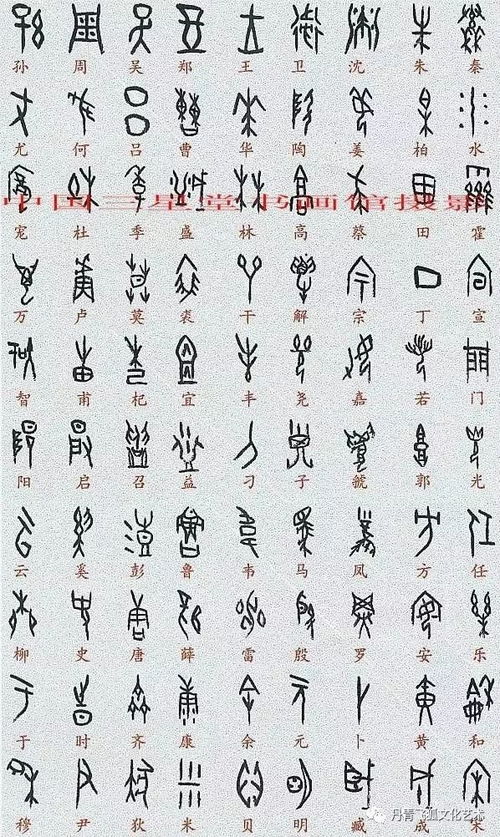 孙 周 吴 郑 王 卫 沈 朱 秦
尤 何 吕 曹 华 陶 姜 柏 水
中国三星堂书画馆摄影
宠 杜 季 盛 林 高 蔡 田 霍
万 卢 莫 裘 干 解 宗 丁 宣
智 甫 杞 宜 丰 尧 嘉 若 门
阳 启 召 益 刁 子 虢 郭 光
云 奚 彭 鲁 韦 马 凤 方 任
柳 史 唐 薛 雷 殷 罗 安 乐
于 时 齐 康 余 元 卜 黄 和
穆 尹 狄 米 贝 明 臧 成 宋
丹青飞狐文化艺术